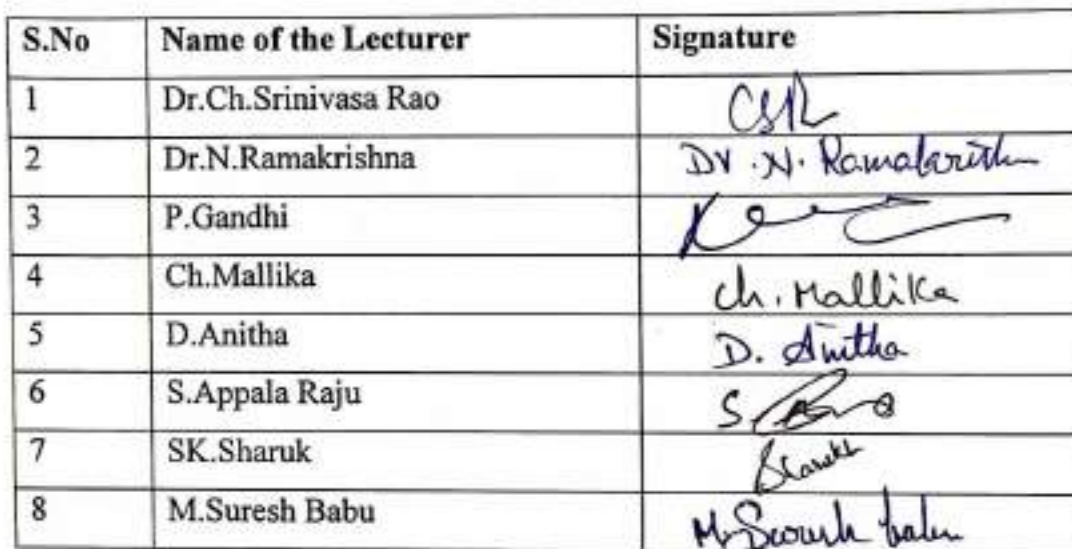 S.No Name of the Lecturer Signature
1 Dr.Ch.Srinivasa Rao CSR
2 Dr.N.Ramakrishna Dr.N.
3 P.Gandhi
4 Ch.Mallika Ch.Mallika
5 D.Anitha D. Anitha
6 S.Appala Raju S.
7 SK.Sharuk
8 M.Suresh Babu